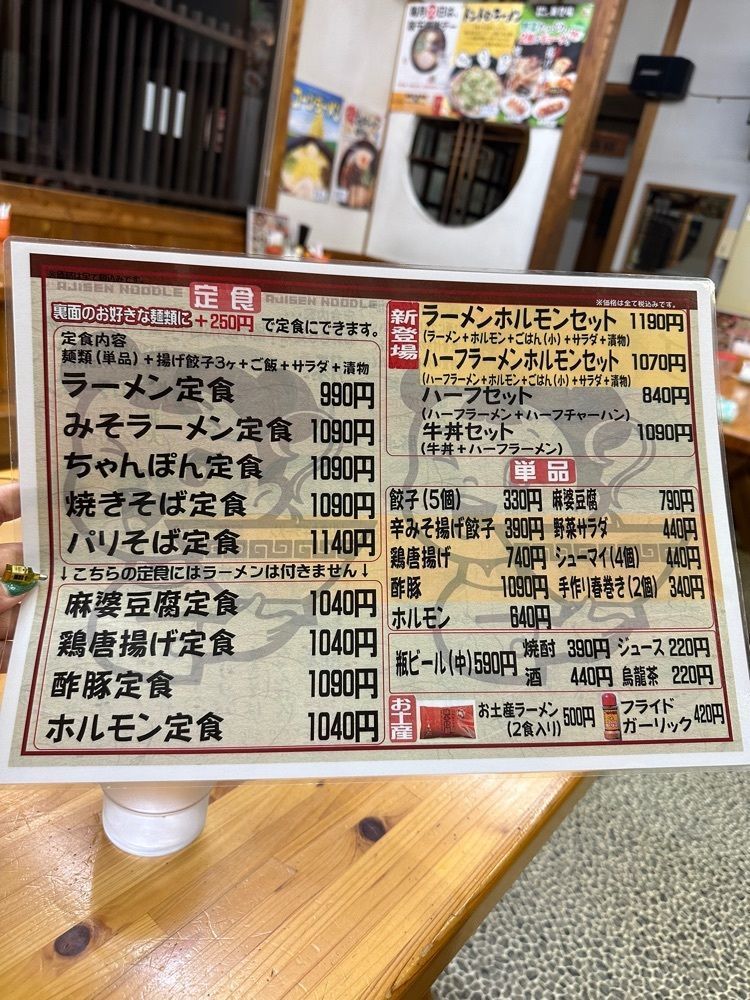 ※価格は全て税込みです。
AJISEN NOODLE 定食 AJISEN NOODLE
裏面のお好きな麺類に+250円で定食にできます。
定食内容
麺類(単品)+揚げ餃子3ヶ+ご飯+サラダ+漬物
ラーメン定食 990円
みそラーメン定食 1090円
ちゃんぽん定食 1090円
焼きそば定食 1090円
パリそば定食 1140円
↓こちらの定食にはラーメンは付きません↓
麻婆豆腐定食 1040円
鶏唐揚げ定食 1040円
酢豚定食 1090円
ホルモン定食 1040円
※価格は全て税込みです。
新登場
ラーメンホルモンセット 1190円
(ラーメン+ホルモン+ごはん(小)+サラダ+漬物)
ハーフラーメンホルモンセット 1070円
(ハーフラーメン+ホルモン+ごはん(小)+サラダ+漬物)
ハーフセット 840円
(ハーフラーメン+ハーフチャーハン)
牛丼セット 1090円
(牛丼+ハーフラーメン)
単品
餃子(5個) 330円 麻婆豆腐 790円
辛みそ揚げ餃子 390円 野菜サラダ 440円
鶏唐揚げ 740円 シューマイ(4個) 440円
酢豚 1090円 手作り春巻き(2個) 340円
ホルモン 640円
瓶ビール(中) 590円 焼酎 390円 ジュース 220円
酒 440円 烏龍茶 220円
お土産 お土産ラーメン(2食入り) 500円 フライドガーリック 420円